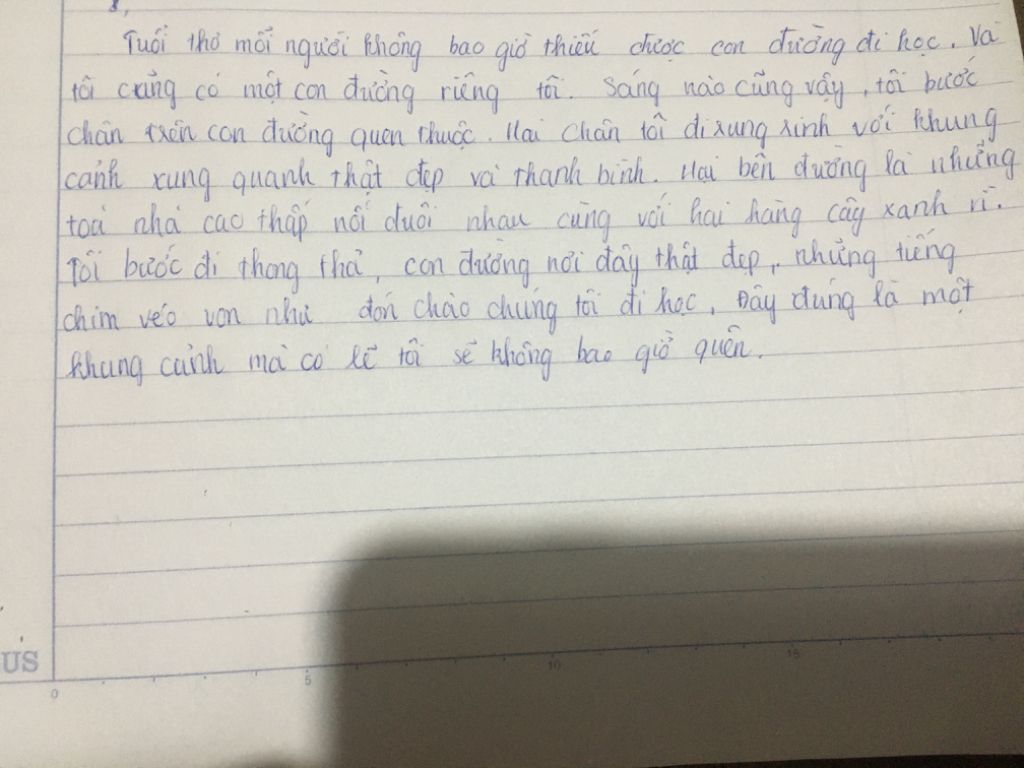 8,
Tuổi thơ mỗi người không bao giờ thiếu được con đường đi học. Và
tôi cũng có một con đường riêng tôi. Sáng nào cũng vậy, tôi bước
chân trên con đường quen thuộc. Hai chân tôi đi xung xinh với khung
cảnh xung quanh thật đẹp và thanh bình. Hai bên đường là những
toà nhà cao thấp nối đuôi nhau cùng với hai hàng cây xanh rì.
Tôi bước đi thong thả, con đường nơi đây thật đẹp, những tiếng
chim véo von như đón chào chúng tôi đi học. Đây đúng là một
khung cảnh mà có lẽ tôi sẽ không bao giờ quên.
US
0 5 10 15